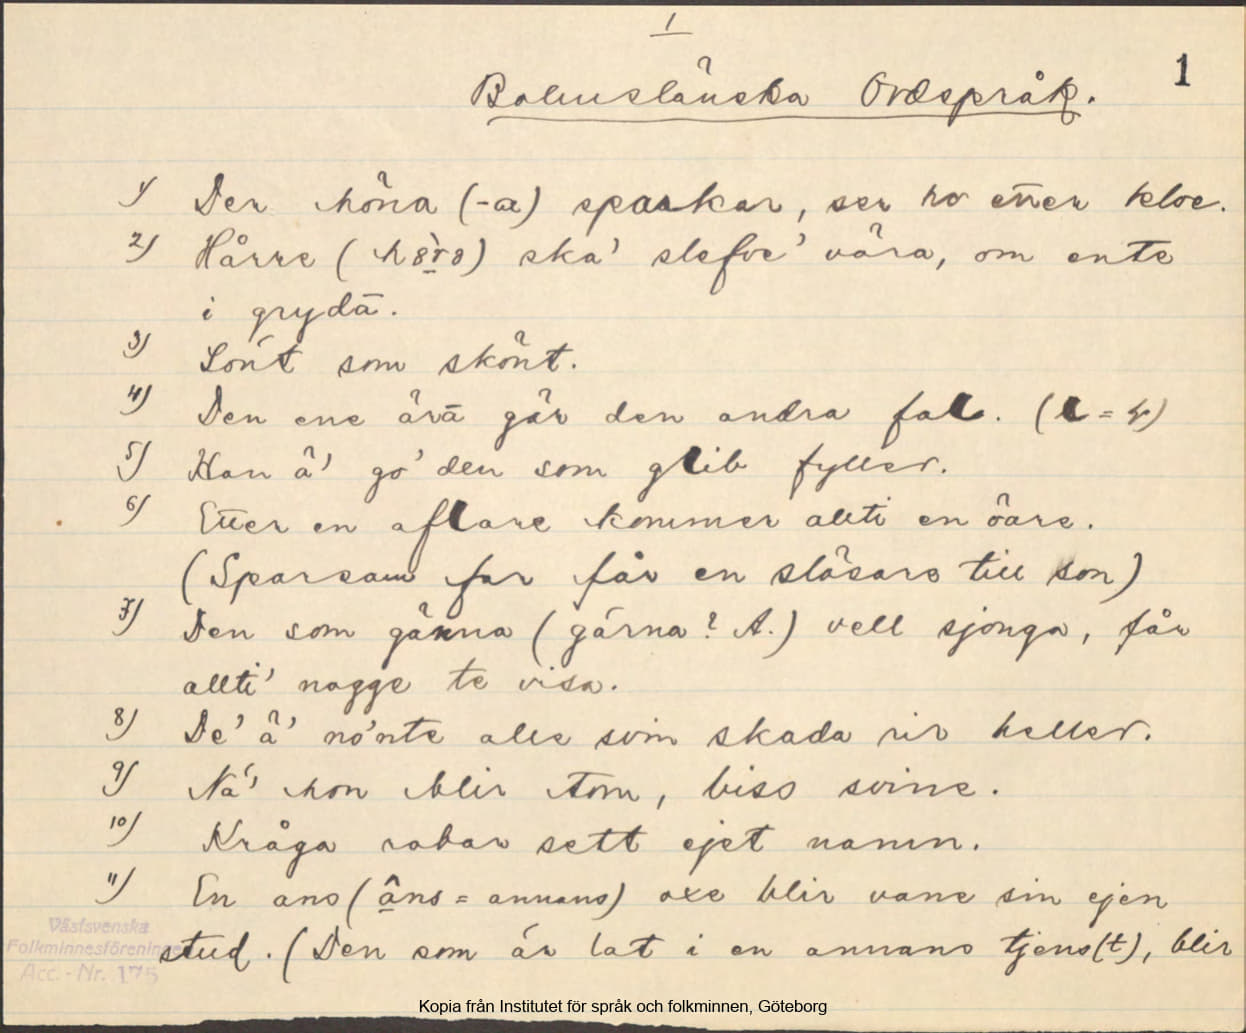 1
1
Bohuslänska Ordspråk.
1) Der höna (-a) sparkar, ser ho etter kloe.
2) Hårre ( ) ska' slefve' våra, om ente
i grydā.
3) Lönt som skönt.
4) Den ene ärā gär den andra fal. (l = )
5) Han ä' go' den som glib fyller.
6) Etter en aflare kommer allti en öare.
(Sparsam far får en slösare till son)
7) Den som gänna (gärna? A.) vell sjonga, får
allti' nogge te visa.
8) De' ä' no'nte alle som skada rir heller.
9) Nä' hon blir tom, biss svine.
10) Kråga robar sett ejet namn.
11) En ans (âns = annans) oxe blir vane sin ejen
stud. (Den som är lat i en annans tjens(t), blir
Västsvenska
Folkminnesföreningen
Acc.-Nr. 175
Kopia från Institutet för språk och folkminnen, Göteborg